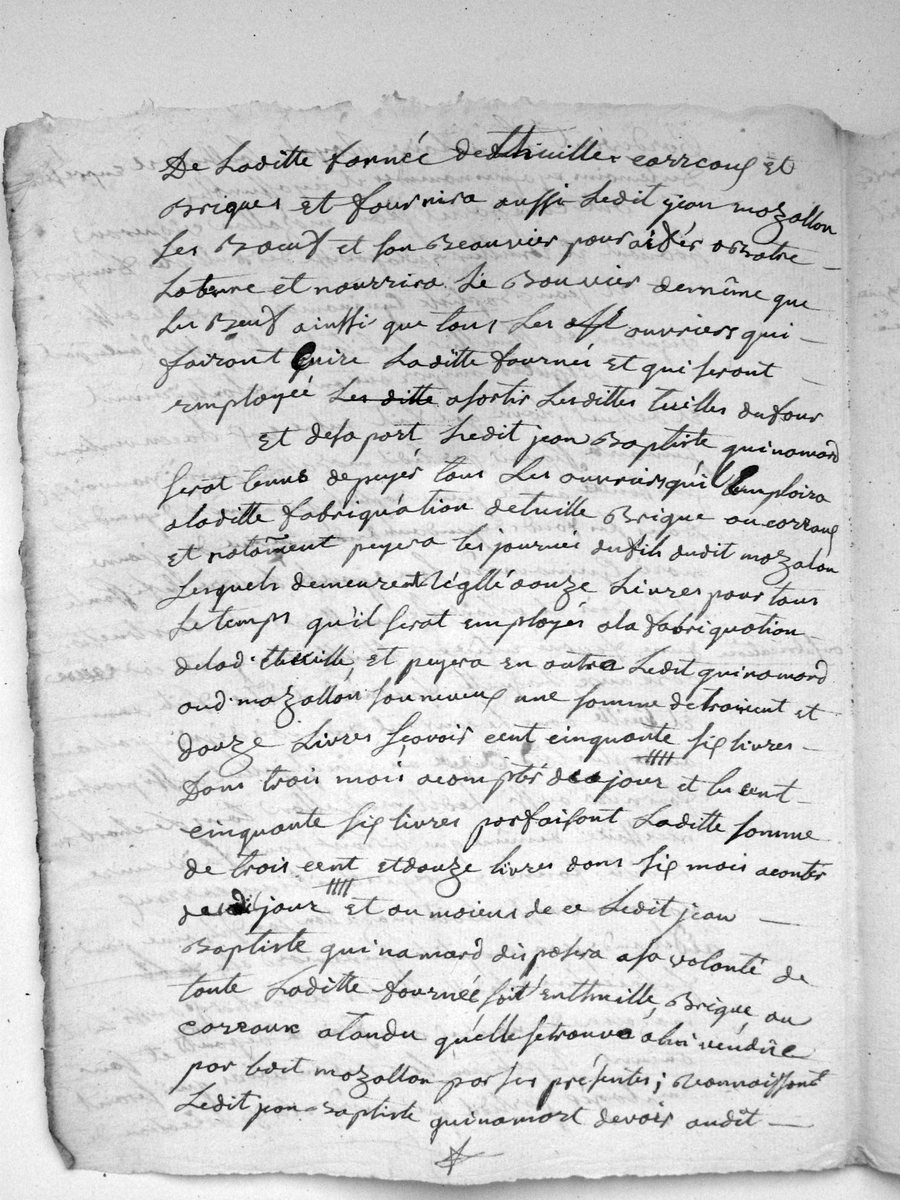 De Laditte fornée de thuille carreaux et
Briques et fournira aussi Ledit jean mozallon
Ses Bœuf et son Beauvier pour aidér a Batre
La terre et nourrira Le Bouvier de même que
Les Bœuf ainssi que tous Les ouvriers qui
fairont Cuire Laditte fournéé et qui seront
employéé Les ditte a sortir Lesdittes tuilles du four
Et de sa part Ledit jean Baptiste quinamard
serat tenus de peyér tous Les ouvriers qui Emploira
a laditte fabriquation de tuille Brique ou carraux
et notamment peyera les journéé du fils dudit mozalon
Lesquels demeurent réglléé a douze Livres pour tous
Le temps qu'il serat employés a la fabriquation
de lad: thuille, et peyera en outre Ledit quinamard
aud: mozallon son neveux une somme de trois cent et
douze Livres sçavoir cent cinquante six livres
Dans trois mois a compter de ce jour et les cent
cinquante six livres parfaisant Laditte somme
de trois cent et douze livres dans six mois a conter
de jour et au moiens de ce Ledit jean
Baptiste quinamard disposera a sa volonté de
toute Laditte fournéé soit En thuille, Brique ou
carraux atandu qu'elle se trouve a lui véndüe
par ledit mozallon par ses présentes; Reconnaissant
Ledit jean Baptiste quinamart devoir audit